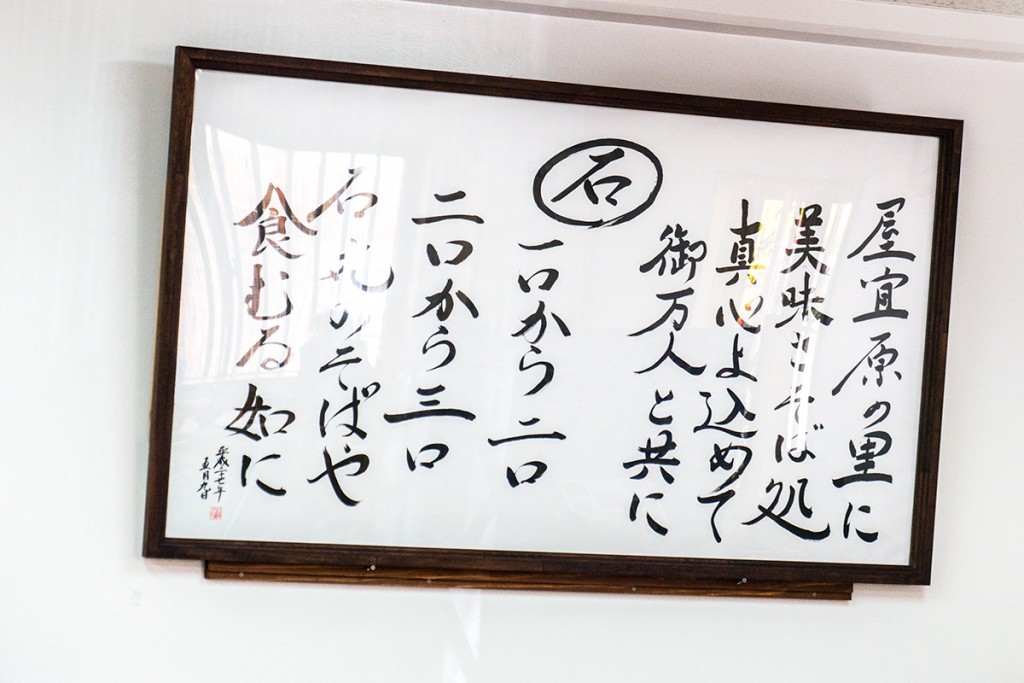 屋宜原の里に
美味さそば処
真心よ込めて
御万人と共に
石
一口から二口
二口から三口
石丸のそばや
食むる如に
平成二十七年
五月九日